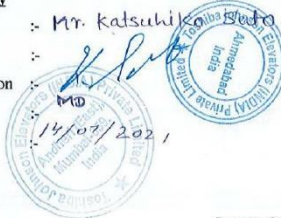 :- Mr. Katsuhiko Suto
:-
on :- MD
:- 14/07/2021
Toshiba Johnson Elevators (INDIA) Private Limited
Ahmedabad
India
Toshiba Johnson Elevators (INDIA) Private Limited
Andheri (East)
Mumbai
India